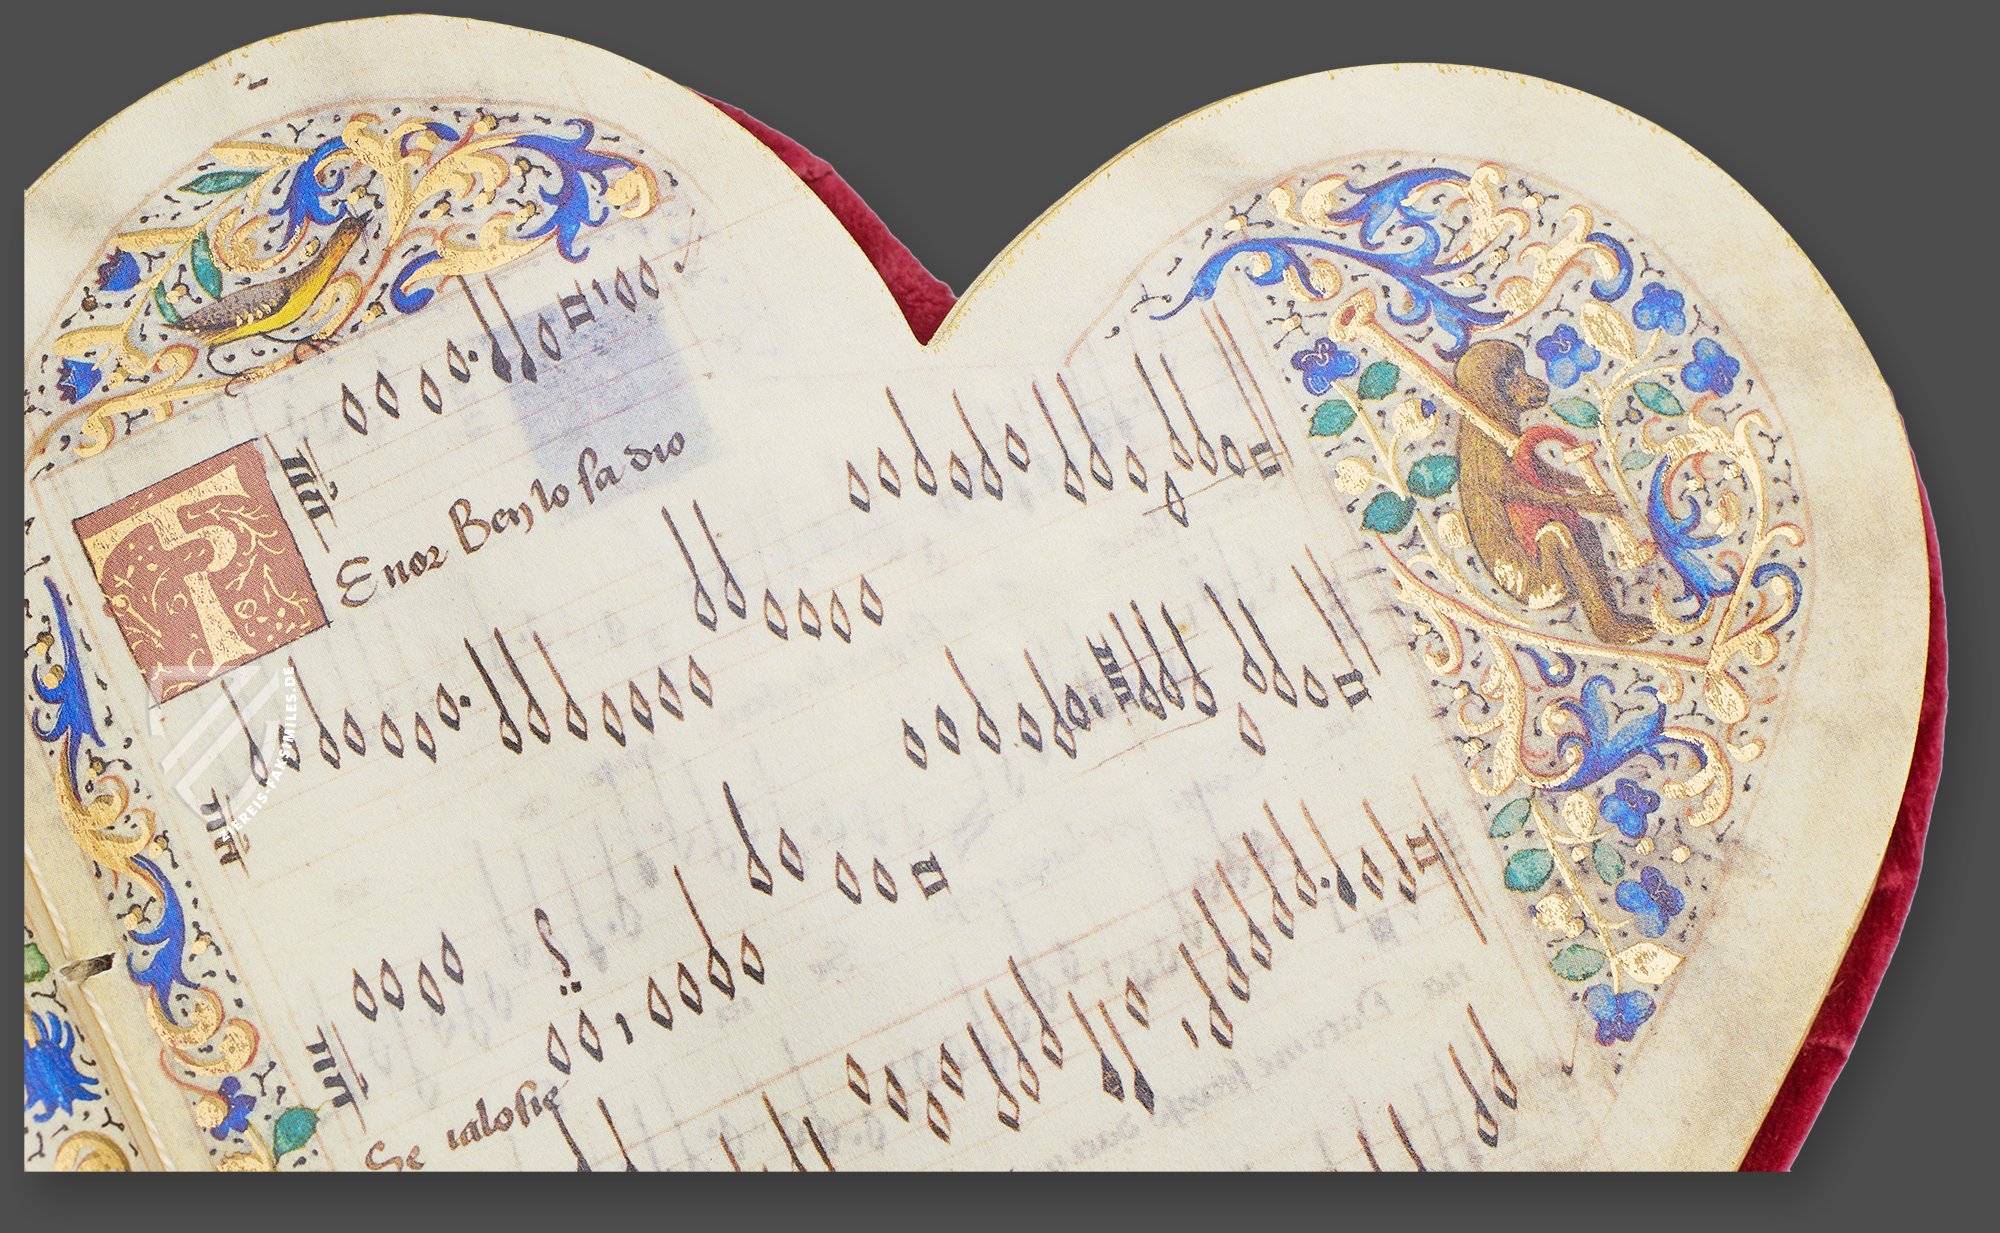 T
Enor Ben lo sa dio
Se ialosie
ZIEREIS-FAKSIMILES.DE